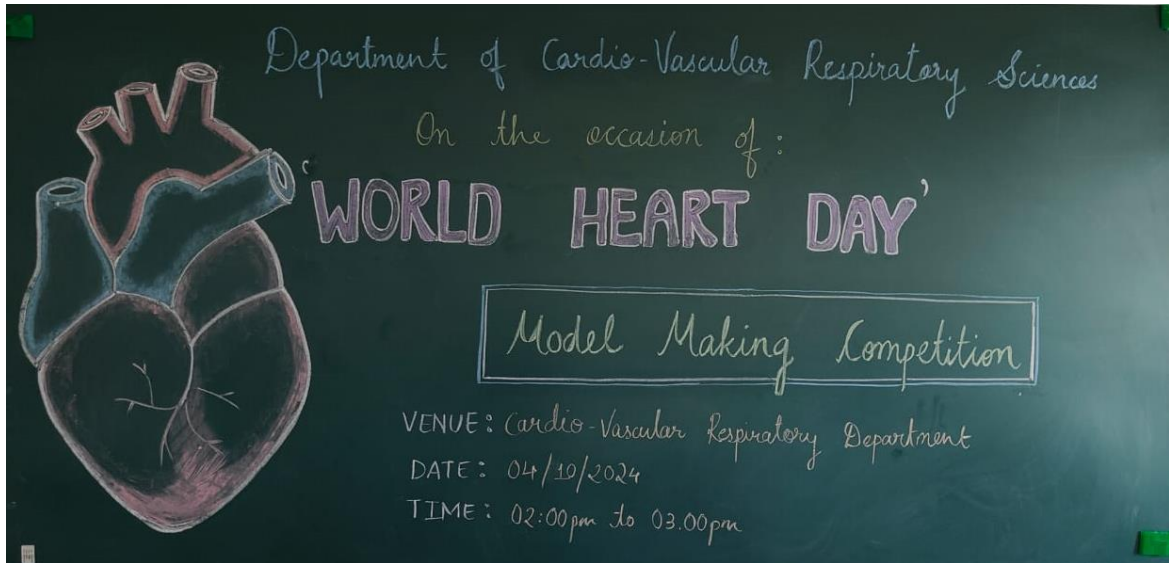 Department of Cardio-Vascular Respiratory Sciences
On the occasion of :
'WORLD HEART DAY'
Model Making Competition
VENUE: Cardio-Vascular Respiratory Department
DATE: 04/10/2024
TIME: 02:00pm to 03.00pm